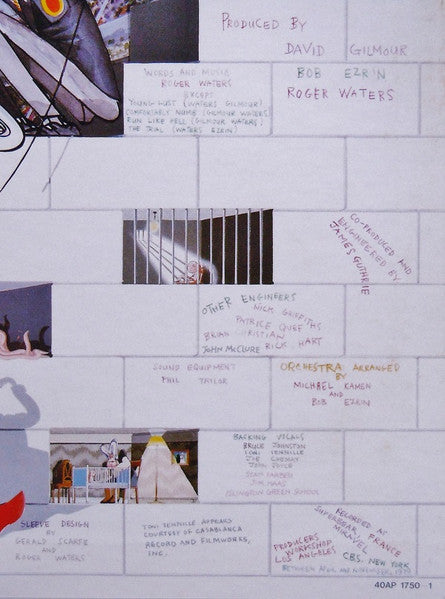 PRODUCED BY
DAVID GILMOUR
BOB EZRIN
ROGER WATERS
WORDS AND MUSIC
ROGER WATERS
EXCEPT
YOUNG LUST (WATERS GILMOUR)
COMFORTABLY NUMB (GILMOUR WATERS)
RUN LIKE HELL (GILMOUR WATERS)
THE TRIAL (WATERS EZRIN)
CO-PRODUCED AND
ENGINEERED BY
JAMES GUTHRIE
OTHER ENGINEERS
NICK GRIFFITHS
PATRICE QUEF
BRIAN CHRISTIAN
JOHN McCLURE RICK HART
SOUND EQUIPMENT
PHIL TAYLOR
ORCHESTRA ARRANGED
BY
MICHAEL KAMEN
AND
BOB EZRIN
BACKING VOCALS
BRUCE JOHNSTON
TONI TENNILLE
JOE CHEMAY
JOHN JOYCE
STAN FARBER
JIM HAAS
ISLINGTON GREEN SCHOOL
SLEEVE DESIGN
BY
GERALD SCARFE
AND
ROGER WATERS
TONI TENNILLE APPEARS
COURTESY OF CASABLANCA
RECORD AND FILMWORKS,
INC.
RECORDED AT
SUPERBEAR FRANCE
MIRAVAL
CBS. NEW YORK
PRODUCERS
WORKSHOP
LOS ANGELES
BETWEEN APRIL AND NOVEMBER, 1979
40AP 1750 1